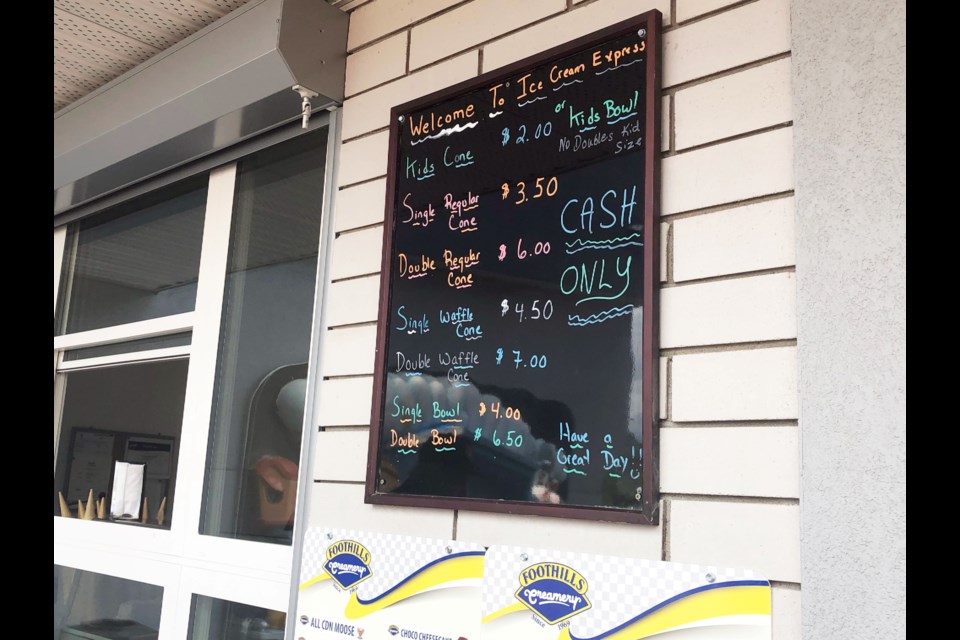 Welcome To Ice Cream Express
Kids Cone $2.00 or Kids Bowl
No Doubles Kid
Size
Single Regular
Cone $3.50
Double Regular
Cone $6.00
CASH
ONLY
Single Waffle
Cone $4.50
Double Waffle
Cone $7.00
Single Bowl $4.00
Double Bowl $6.50
Have a
Great Day!!
FOOTHILLS
Creamery
ALL CDN MOOSE
CHOCO CHEESECAKE
FOOTHILLS
Creamery
Since 1969